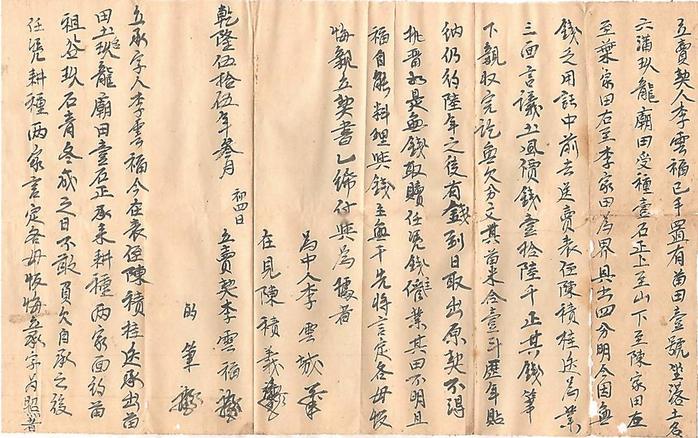 立賣契人李雲福已手置有苗田壹號坐落土名
六满玖龍廟田受種壹石正上至山下至陳家田左
至葉家田右至李家田為界具出四分明今因無
錢乏用託中前去送賣表伍陳積桂送為業
三面言議土風價錢壹拾陸千正其錢筆
下親收完訖無欠分文其苗米合壹斗歷年貼
納仍約陸年之後有錢到日取出原契不得
執吝如是無錢取贖任憑錢主管業其田不明且
福自能料理與錢主無干先將言定各毋反
悔親立契書乙紙付與為據者
為中人李雲城
在見陳積義
乾隆伍拾伍年叁月 初四日 立賣契李雲福
的筆
立承字人李雲福今在表伍陳積桂送承出苗
田土名玖龍廟田壹石正承来耕種两家面約苗
租谷玖石青冬成之日不敢頁欠自承之後
任憑耕種两家言定各毋反悔立承字為照者